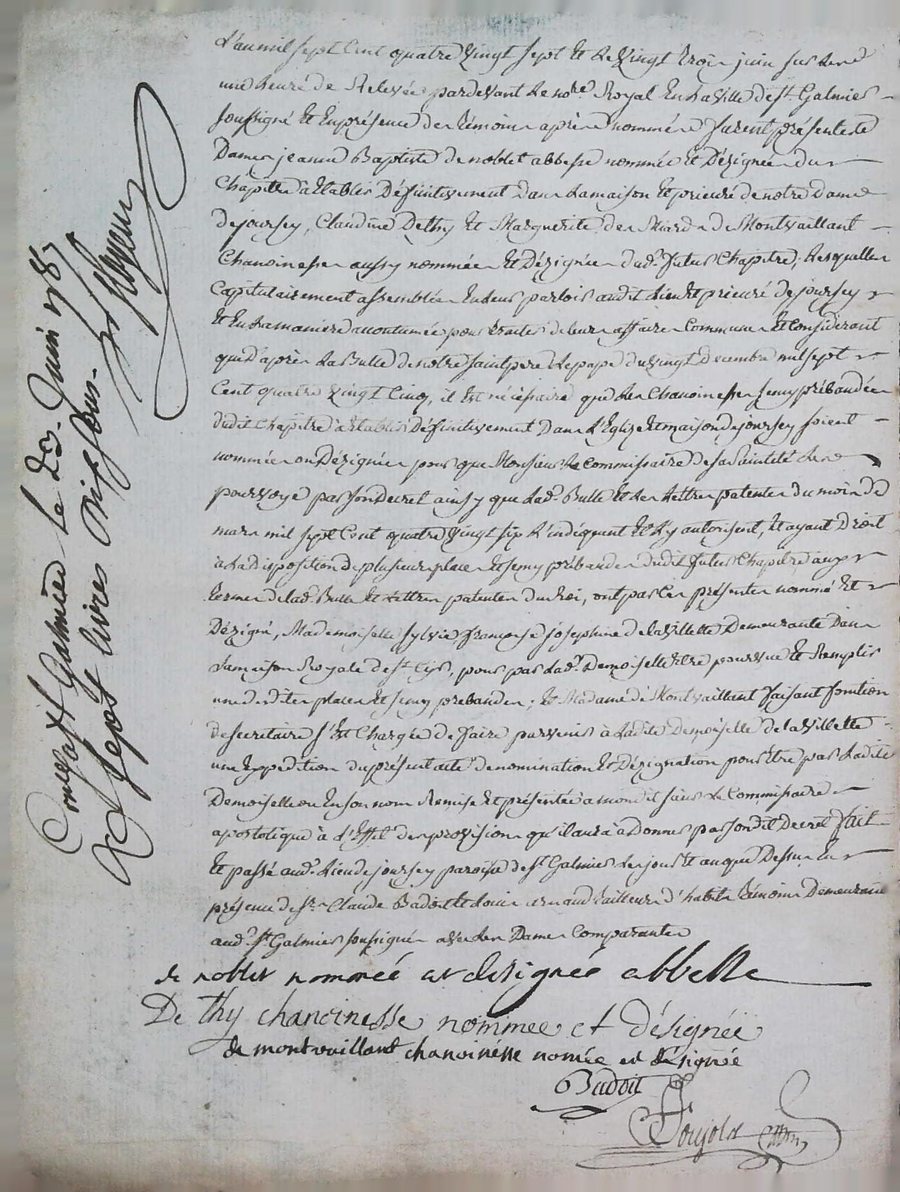 L'an mil sept Cent quatre Vingt Sept Et le Vingt Trois juin sur les
une heure de Relevée pardevant le no.re Royal En la Ville de St. Galmier
soussigné Et En présence des témoins après nommés furent présentes
Dames jeanne Baptiste de noblet abbesse nommée et Dézignée du
Chapitre à Etablir Définitivement Dans la maison Et prieuré de notre dame
de joursey, Claudine Dethy Et Marguerite des Mards de Montvaillant
Chanoinesses aussy nommées Et Dézignées dud. futur Chapitre; lesquelles
Capitulairement assemblées En leur parloir audit lieu Et prieuré de joursey
Et En la maniere accoutumée pour traiter de leurs affaires Communes Et Considerant
que d'après la Bulle de notre saint pere le pape du Vingt Decembre mil sept
Cent quatre Vingt Cinq, il Est nécéssaire que les Chanoinesses semy prébandées
dudit Chapitre à Etablir Définitivement Dans L'Eglize Et maison de joursey soient
nommées ou Dézignées pour que Monsieur le Commissaire de sa Sainteté les
pourvoye par son Decret ainsy que lad. Bulle Et les Lettres patentes du mois de
mars mil sept Cent quatre Vingt six l'indiquent Et l'y autorisent, Et ayant Droit
à la disposition de plusieurs places Et semy prébandes dudit futur Chapitre aux
termes de lad. Bulle Et Lettres patentes du Roi, ont par Ces présentes nommé Et
Dézigné, Mademoiselle Sylvie françoise joséphine de la Villette Demeurante Dans
la maison Royale de St. Cyr, pour par lad. Demoiselle Etre pourvue Et Remplir
une desdites places Et semy prébandes; Et Madame de Montvaillant faisant fonction
de secretaire s'Est Chargée de faire parvenir à Ladite Demoiselle de la Villette
une Expedition du présent acte de nomination Et Dézignation pour Etre par Ladite
Demoiselle ou En son nom Remise Et présentée à mondit sieur le Commissaire
apostolique à L'Effet des provisions qu'il aura à Donner par sondit Decret fait
Et passé aud. Lieu de joursey paroisse de St. Galmier les jour Et an que Dessus En
présence de Sr. Claude Badoit Et Louis arnaud tailleur d'habits témoins Demeurant
aud. St. Galmier soussignés avec les Dames Comparantes
de noblet nommée et désignée abbesse
De thy chanoinesse nommee et désignée
de montvaillant chanoinesse nomée et désignée
Badoit
Poujols
Con.lé a St Galmier le 23. Juin 1787
R sept livres dix sous.